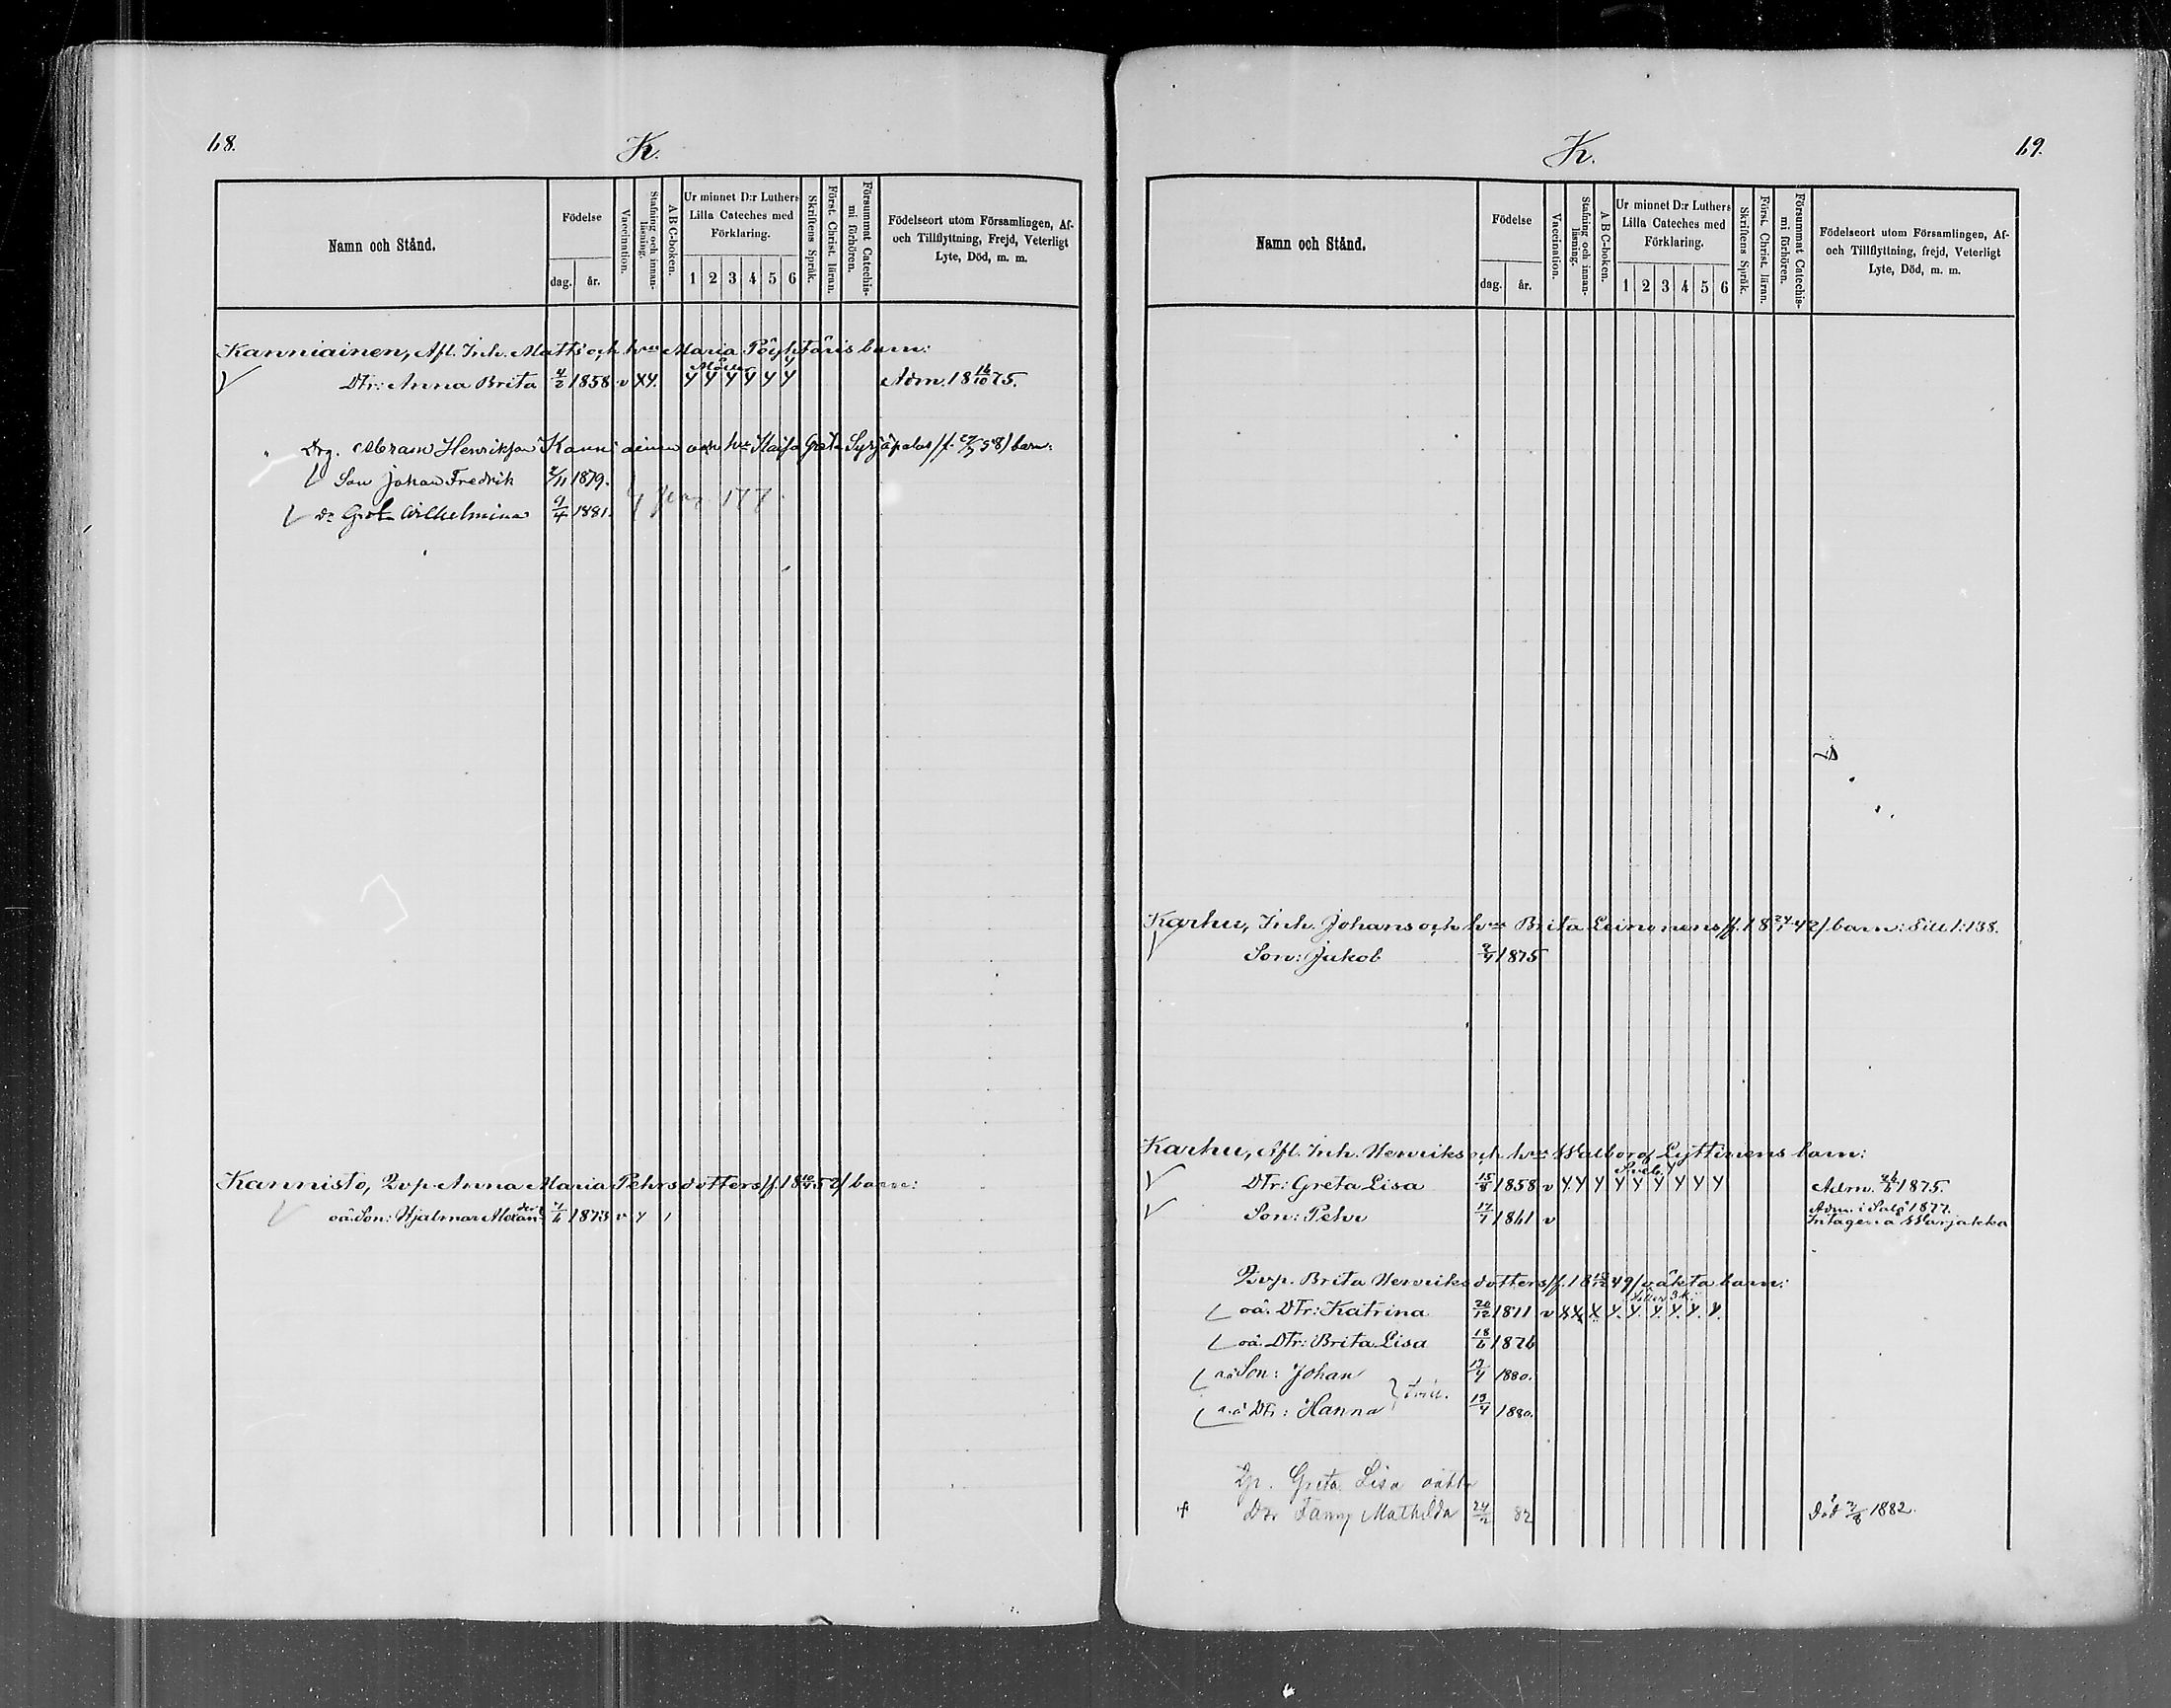 68.
K.
Namn och Stånd.
Födelse
dag.
år.
Vaccination.
Stafning och innan-
läsning.
A B C-boken.
Ur minnet D:r Luthers
Lilla Cateches med
Förklaring.
1 2 3 4 5 6
Skriftens Språk.
Först. Christ. läran.
Försummat Catechis-
mi förhören.
Födelseort utom Församlingen, Af-
och Tillflyttning, Frejd, Veterligt
Lyte, Död, m. m.
Kanniainen, Afl. Inh. Matts och hns Maria Pöyhtäris barn:
Dtr: Anna Brita 4/2 1858 v Adm. 18 16/10 75.
Drg. Abram Henriksson Kanniainen och hns Kaisa Greta Syrjäpalos barn:
Son Johan Fredrik 2/11 1879.
Dr Greta Wilhelmina 9/4 1881.
Kannisto, Qvp. Anna Maria Pehrsdotters barn:
oä. Son: Hjalmar Alexander 7/6 1873 v
K.
69.
Namn och Stånd.
Födelse
dag.
år.
Vaccination.
Stafning och innan-
läsning.
A B C-boken.
Ur minnet D:r Luthers
Lilla Cateches med
Förklaring.
1 2 3 4 5 6
Skriftens Språk.
Först. Christ. läran.
Försummat Catechis-
mi förhören.
Födelseort utom Församlingen, Af-
och Tillflyttning, frejd, Veterligt
Lyte, Död, m. m.
Karhu, Inh. Johans och hns Brita Leinonens /f. 18 24/1 42/ barn: 1:138.
Son: Jakob 1875
Karhu, Afl. Inh. Henriks och hns Walborg Lyttinens barn:
Dtr: Greta Lisa 15/8 1858 v Adm. 1875.
Son: Pehr 17/7 1861 v Adm. i Salo 1877.
Intagen å Warjakka
Qvp. Brita Henriksdotters oäkta barn:
oä. Dtr: Katrina 20/12 1871 v
oä. Dtr: Brita Lisa 18/6 1876
oä Son: Johan 1880.
oä Dtr: Hanna 1880.
Qp. Greta Lisa oäkta
Dtr Fanny Mathilda 24/2 82 död 1882.